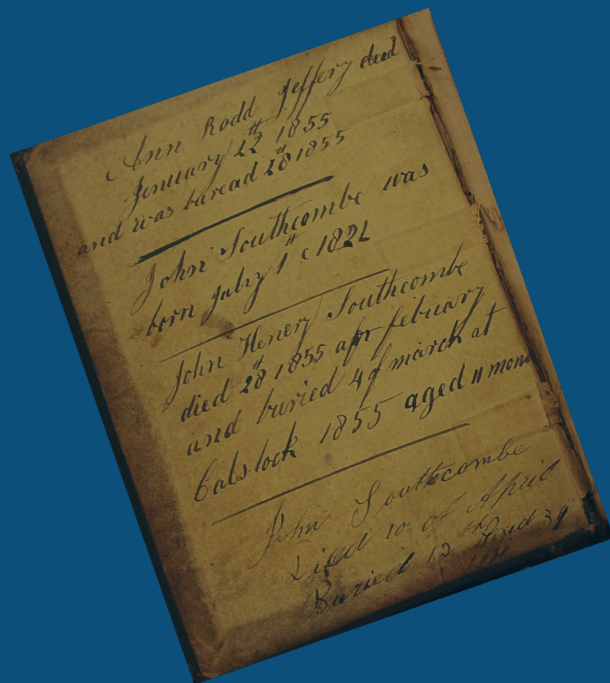 Ann Rodd Jeffery died
January 22th 1855
and was buread 28th 1855
John Southcombe was
born July 1th 1821
John Henery Southcombe
died 28th 1855 apr febuary
and buried 4 of march at
Calstock 1855 aged 11 mon
John Southcombe
Died 10 of April
Buried 13 39